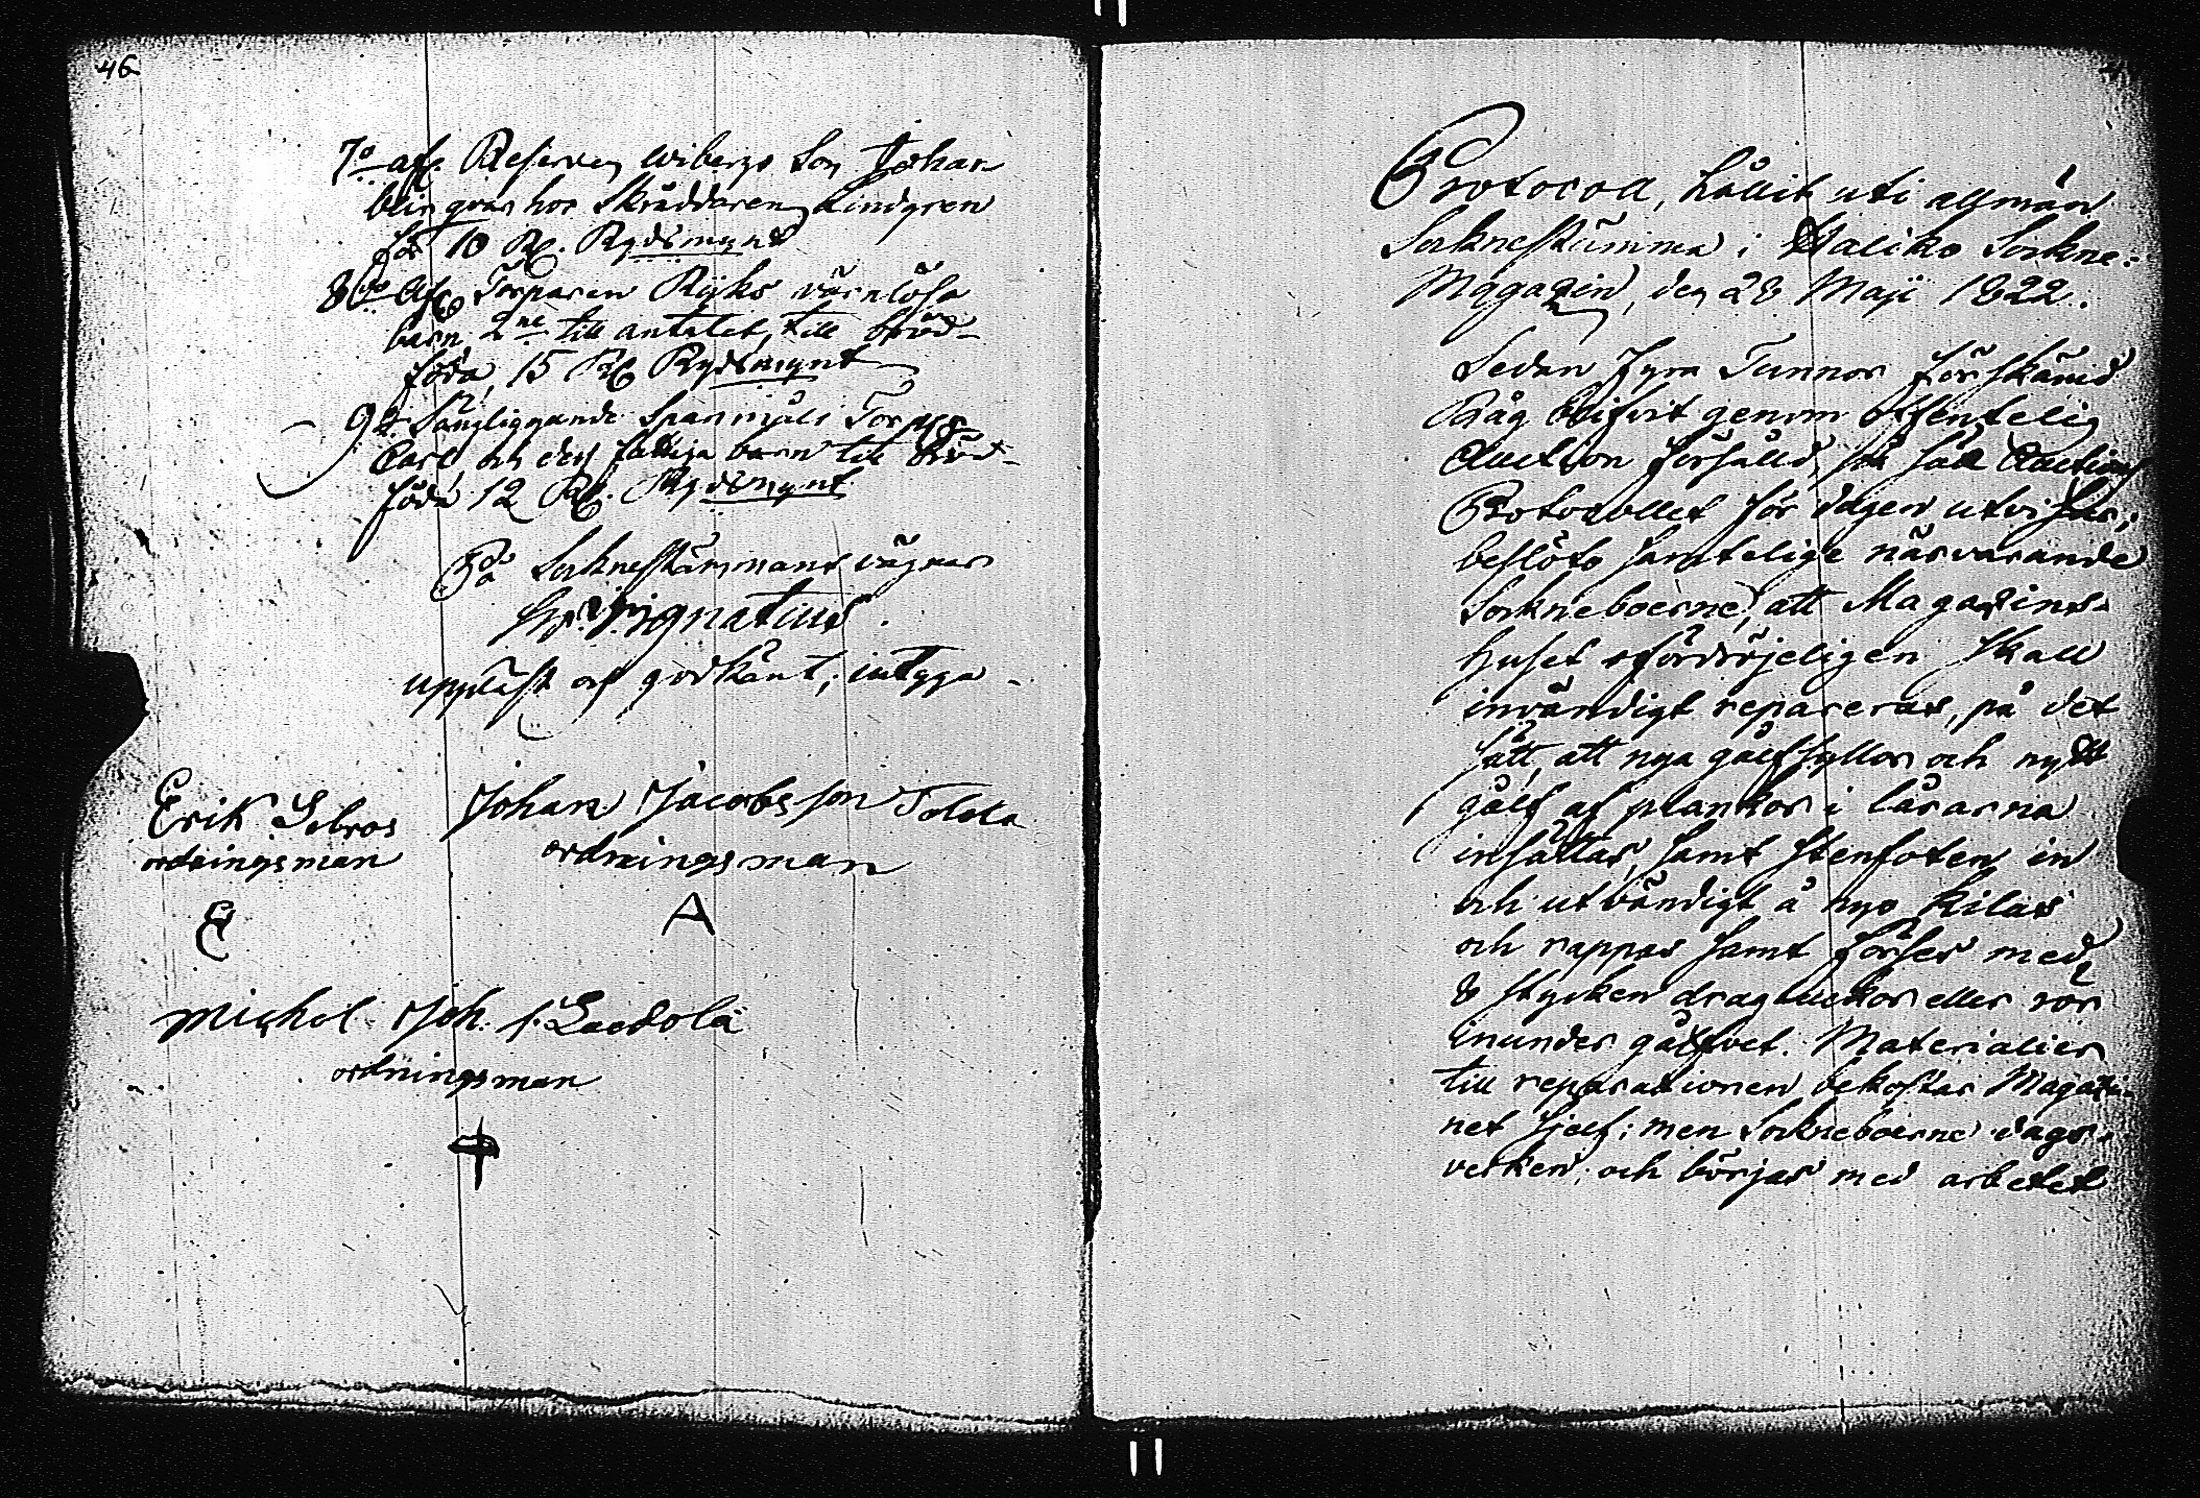 46
7o afl. Reserven Wibergs Son Johan
blir qvar hos Skräddaren Lindgren
för 10 Rt. Rgdsmynt
8vo Afl. Torparen Ryks värnlösa
barn, 2ne till antalet, till bröd-
föda, 15 Rt Rgdsmynt
9o Sängliggande Spannmåls Torp
Carl, och des fattiga barn till bröd-
föda 12 Rt. Rgdsmynt
På Soknestämmans vägnar
Ignatius.
uppläst och godkänt; intyga -
Erik Sebros Johan Jacobsson Tolola
ordningsman ordningsman
E A
Michel Joh. s. Laedola
ordningsman
Protocoll, hållit uti allmän
Soknestämma i Haliko Sokne-
Magazin, den 28 Maji 1822.
Sedan fyra Tunnor förskämd
Råg blifvit genom Offentelig
Auction försåld, så fall Auctions
Protocollet för dagen utvisar;
beslöto samtelige närvarande
Sokneboerne, att Magazins-
huset ofördröjeligen skall
invändigt repareras, på det
sätt, att nya gålfsyllor och nytt
gålf af plankor i lårarna
insättas, samt stenfoten in
och utvändigt å nyo kilas
och rappas samt förses med
8 stycken dragluckor eller rör
inunder gålfvet. Materialier
till reparationen bekostar Magazi-
net sjelf; men Sokneboerne dags-
verken; och börjas med arbetet